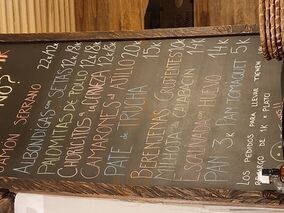 NO?
JAMÓN SERRANO 22€ 12€
ALBONDIGAS con SETAS 12€ 8€
PALOMITAS DE POLLO 12€ 8€
CHORICITOS a la 12€ 8€
CAMARONES al AJILLO 20€
PATE de TRUCHA 10€
BERENJENAS CRUJIENTES 15€
MILHOJA de CALABACIN 10€
ESCALIVADA con HUEVO 14€
PAN 3€ PAN TOMAQUET 5€
LOS PEDIDOS PARA LLEVAR TIENEN
RECARGO DE 1€ X PLATO